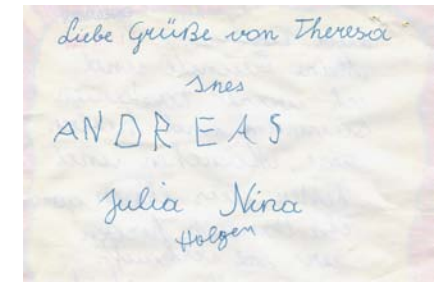 Liebe Grüße von Theresa
Ines
ANDREAS
Julia Nina
Holger